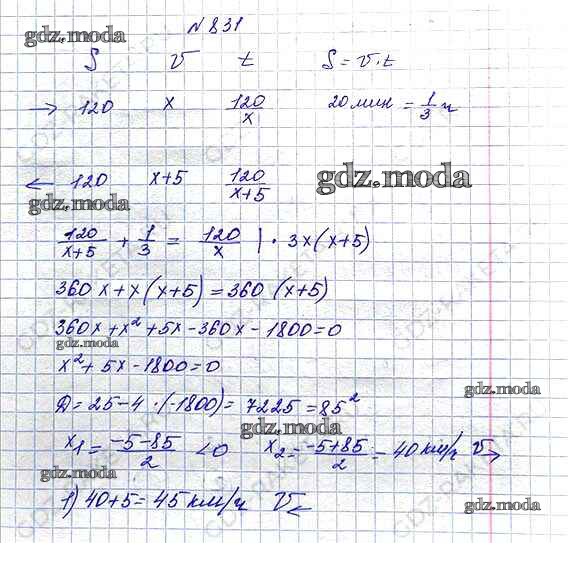 № 831
gdz.moda
S V t S = V·t
→ 120 x 120/x 20 мин = 1/3 ч
← 120 x+5 120/(x+5)
gdz.moda
gdz.moda
120/(x+5) + 1/3 = 120/x | · 3x(x+5)
360x + x(x+5) = 360(x+5)
360x + x² + 5x - 360x - 1800 = 0
gdz.moda
x² + 5x - 1800 = 0
gdz.moda
Д = 25 - 4·(-1800) = 7225 = 85²
gdz.moda
x₁ = (-5-85)/2 < 0 x₂ = (-5+85)/2 = 40 км/ч V→
gdz.moda
1) 40+5 = 45 км/ч V←
gdz.moda
GDZ-RAKETA